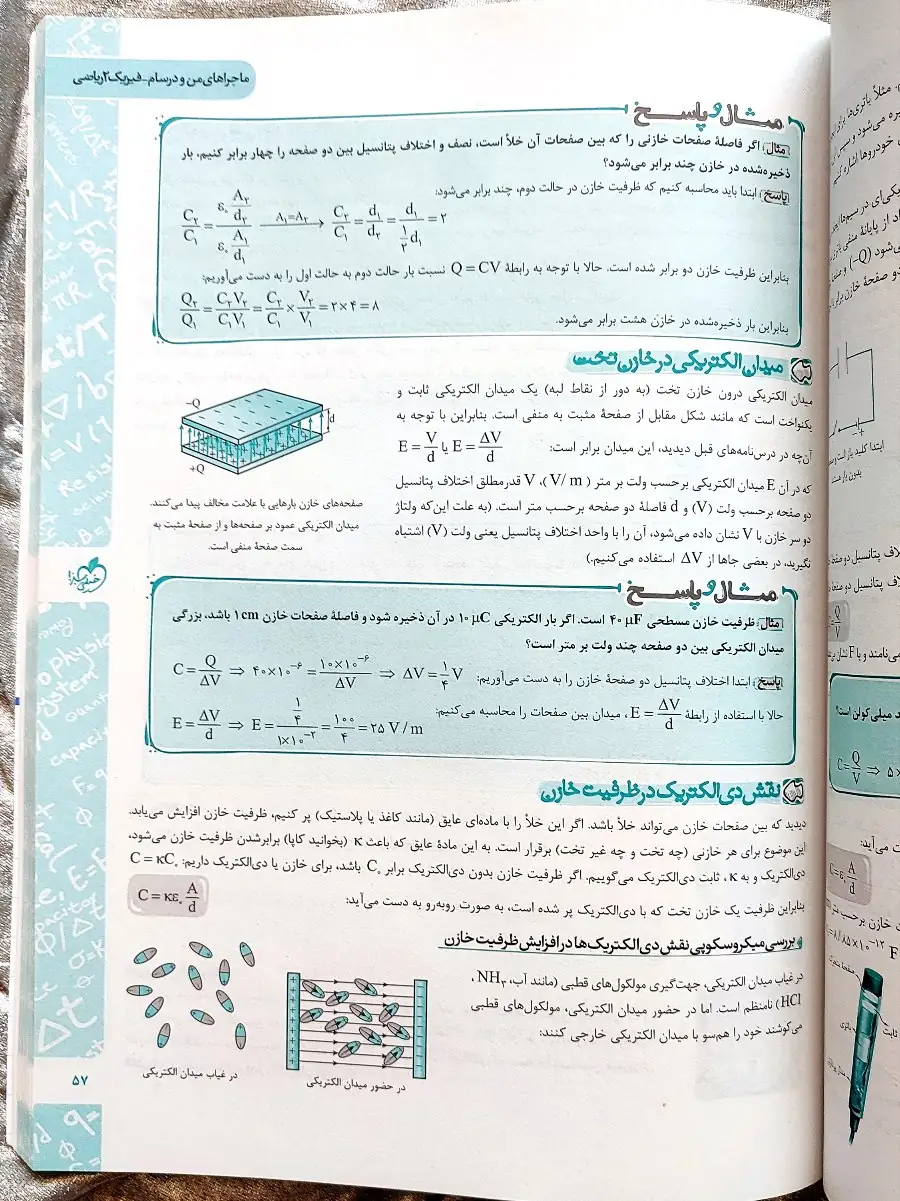 ماجراهای من و درسام - فیزیک ۲ ریاضی
مثال و پاسخ
مثال: اگر فاصلهٔ صفحات خازنی را که بین صفحات آن خلأ است، نصف و اختلاف پتانسیل بین دو صفحه را چهار برابر کنیم، بار
ذخیره‌شده در خازن چند برابر می‌شود؟
پاسخ: ابتدا باید محاسبه کنیم که ظرفیت خازن در حالت دوم، چند برابر می‌شود:
C₂/C₁ = (ε₀ A₂/d₂)/(ε₀ A₁/d₁) —A₁=A₂→ C₂/C₁ = d₁/d₂ = d₁/(۱/۲ d₁) = ۲
بنابراین ظرفیت خازن دو برابر شده است. حالا با توجه به رابطهٔ Q = CV نسبت بار حالت دوم به حالت اول را به دست می‌آوریم:
Q₂/Q₁ = C₂V₂/C₁V₁ = C₂/C₁ × V₂/V₁ = ۲×۴ = ۸
بنابراین بار ذخیره‌شده در خازن هشت برابر می‌شود.
میدان الکتریکی در خازن تخت
میدان الکتریکی درون خازن تخت (به دور از نقاط لبه) یک میدان الکتریکی ثابت و
یکنواخت است که مانند شکل مقابل از صفحهٔ مثبت به منفی است. بنابراین با توجه به
آن‌چه در درس‌نامه‌های قبل دیدید، این میدان برابر است: E = ΔV/d یا E = V/d
که در آن E میدان الکتریکی برحسب ولت بر متر (V/m)، V قدرمطلق اختلاف پتانسیل
دو صفحه برحسب ولت (V) و d فاصلهٔ دو صفحه برحسب متر است. (به علت این‌که ولتاژ
دو سر خازن با V نشان داده می‌شود، آن را با واحد اختلاف پتانسیل یعنی ولت (V) اشتباه
نگیرید، در بعضی جاها از ΔV استفاده می‌کنیم.)
−Q
d
+Q
صفحه‌های خازن بارهایی با علامت مخالف پیدا می‌کنند.
میدان الکتریکی عمود بر صفحه‌ها و از صفحهٔ مثبت به
سمت صفحهٔ منفی است.
مثال و پاسخ
مثال: ظرفیت خازن مسطحی ۴۰ μF است. اگر بار الکتریکی ۱۰ μC در آن ذخیره شود و فاصلهٔ صفحات خازن ۱ cm باشد، بزرگی
میدان الکتریکی بین دو صفحه چند ولت بر متر است؟
پاسخ: ابتدا اختلاف پتانسیل دو صفحهٔ خازن را به دست می‌آوریم: C = Q/ΔV ⇒ ۴۰×۱۰⁻⁶ = ۱۰×۱۰⁻⁶/ΔV ⇒ ΔV = ۱/۴ V
حالا با استفاده از رابطهٔ E = ΔV/d، میدان بین صفحات را محاسبه می‌کنیم: E = ΔV/d ⇒ E = (۱/۴)/(۱×۱۰⁻²) = ۱۰۰/۴ = ۲۵ V/m
نقش دی‌الکتریک در ظرفیت خازن
دیدید که بین صفحات خازن می‌تواند خلأ باشد. اگر این خلأ را با ماده‌ای عایق (مانند کاغذ یا پلاستیک) پر کنیم، ظرفیت خازن افزایش می‌یابد.
این موضوع برای هر خازنی (چه تخت و چه غیر تخت) برقرار است. به این مادهٔ عایق که باعث κ (بخوانید کاپا) برابرشدن ظرفیت خازن می‌شود،
دی‌الکتریک و به κ، ثابت دی‌الکتریک می‌گوییم. اگر ظرفیت خازن بدون دی‌الکتریک برابر C₀ باشد، برای خازن با دی‌الکتریک داریم: C = κC₀
بنابراین ظرفیت یک خازن تخت که با دی‌الکتریک پر شده است، به صورت روبه‌رو به دست می‌آید: C = κε₀ A/d
بررسی میکروسکوپی نقش دی‌الکتریک‌ها در افزایش ظرفیت خازن
در غیاب میدان الکتریکی، جهت‌گیری مولکول‌های قطبی (مانند آب، NH₃،
HCl) نامنظم است. اما در حضور میدان الکتریکی، مولکول‌های قطبی
می‌کوشند خود را هم‌سو با میدان الکتریکی خارجی کنند:
در غیاب میدان الکتریکی
در حضور میدان الکتریکی
۵۷